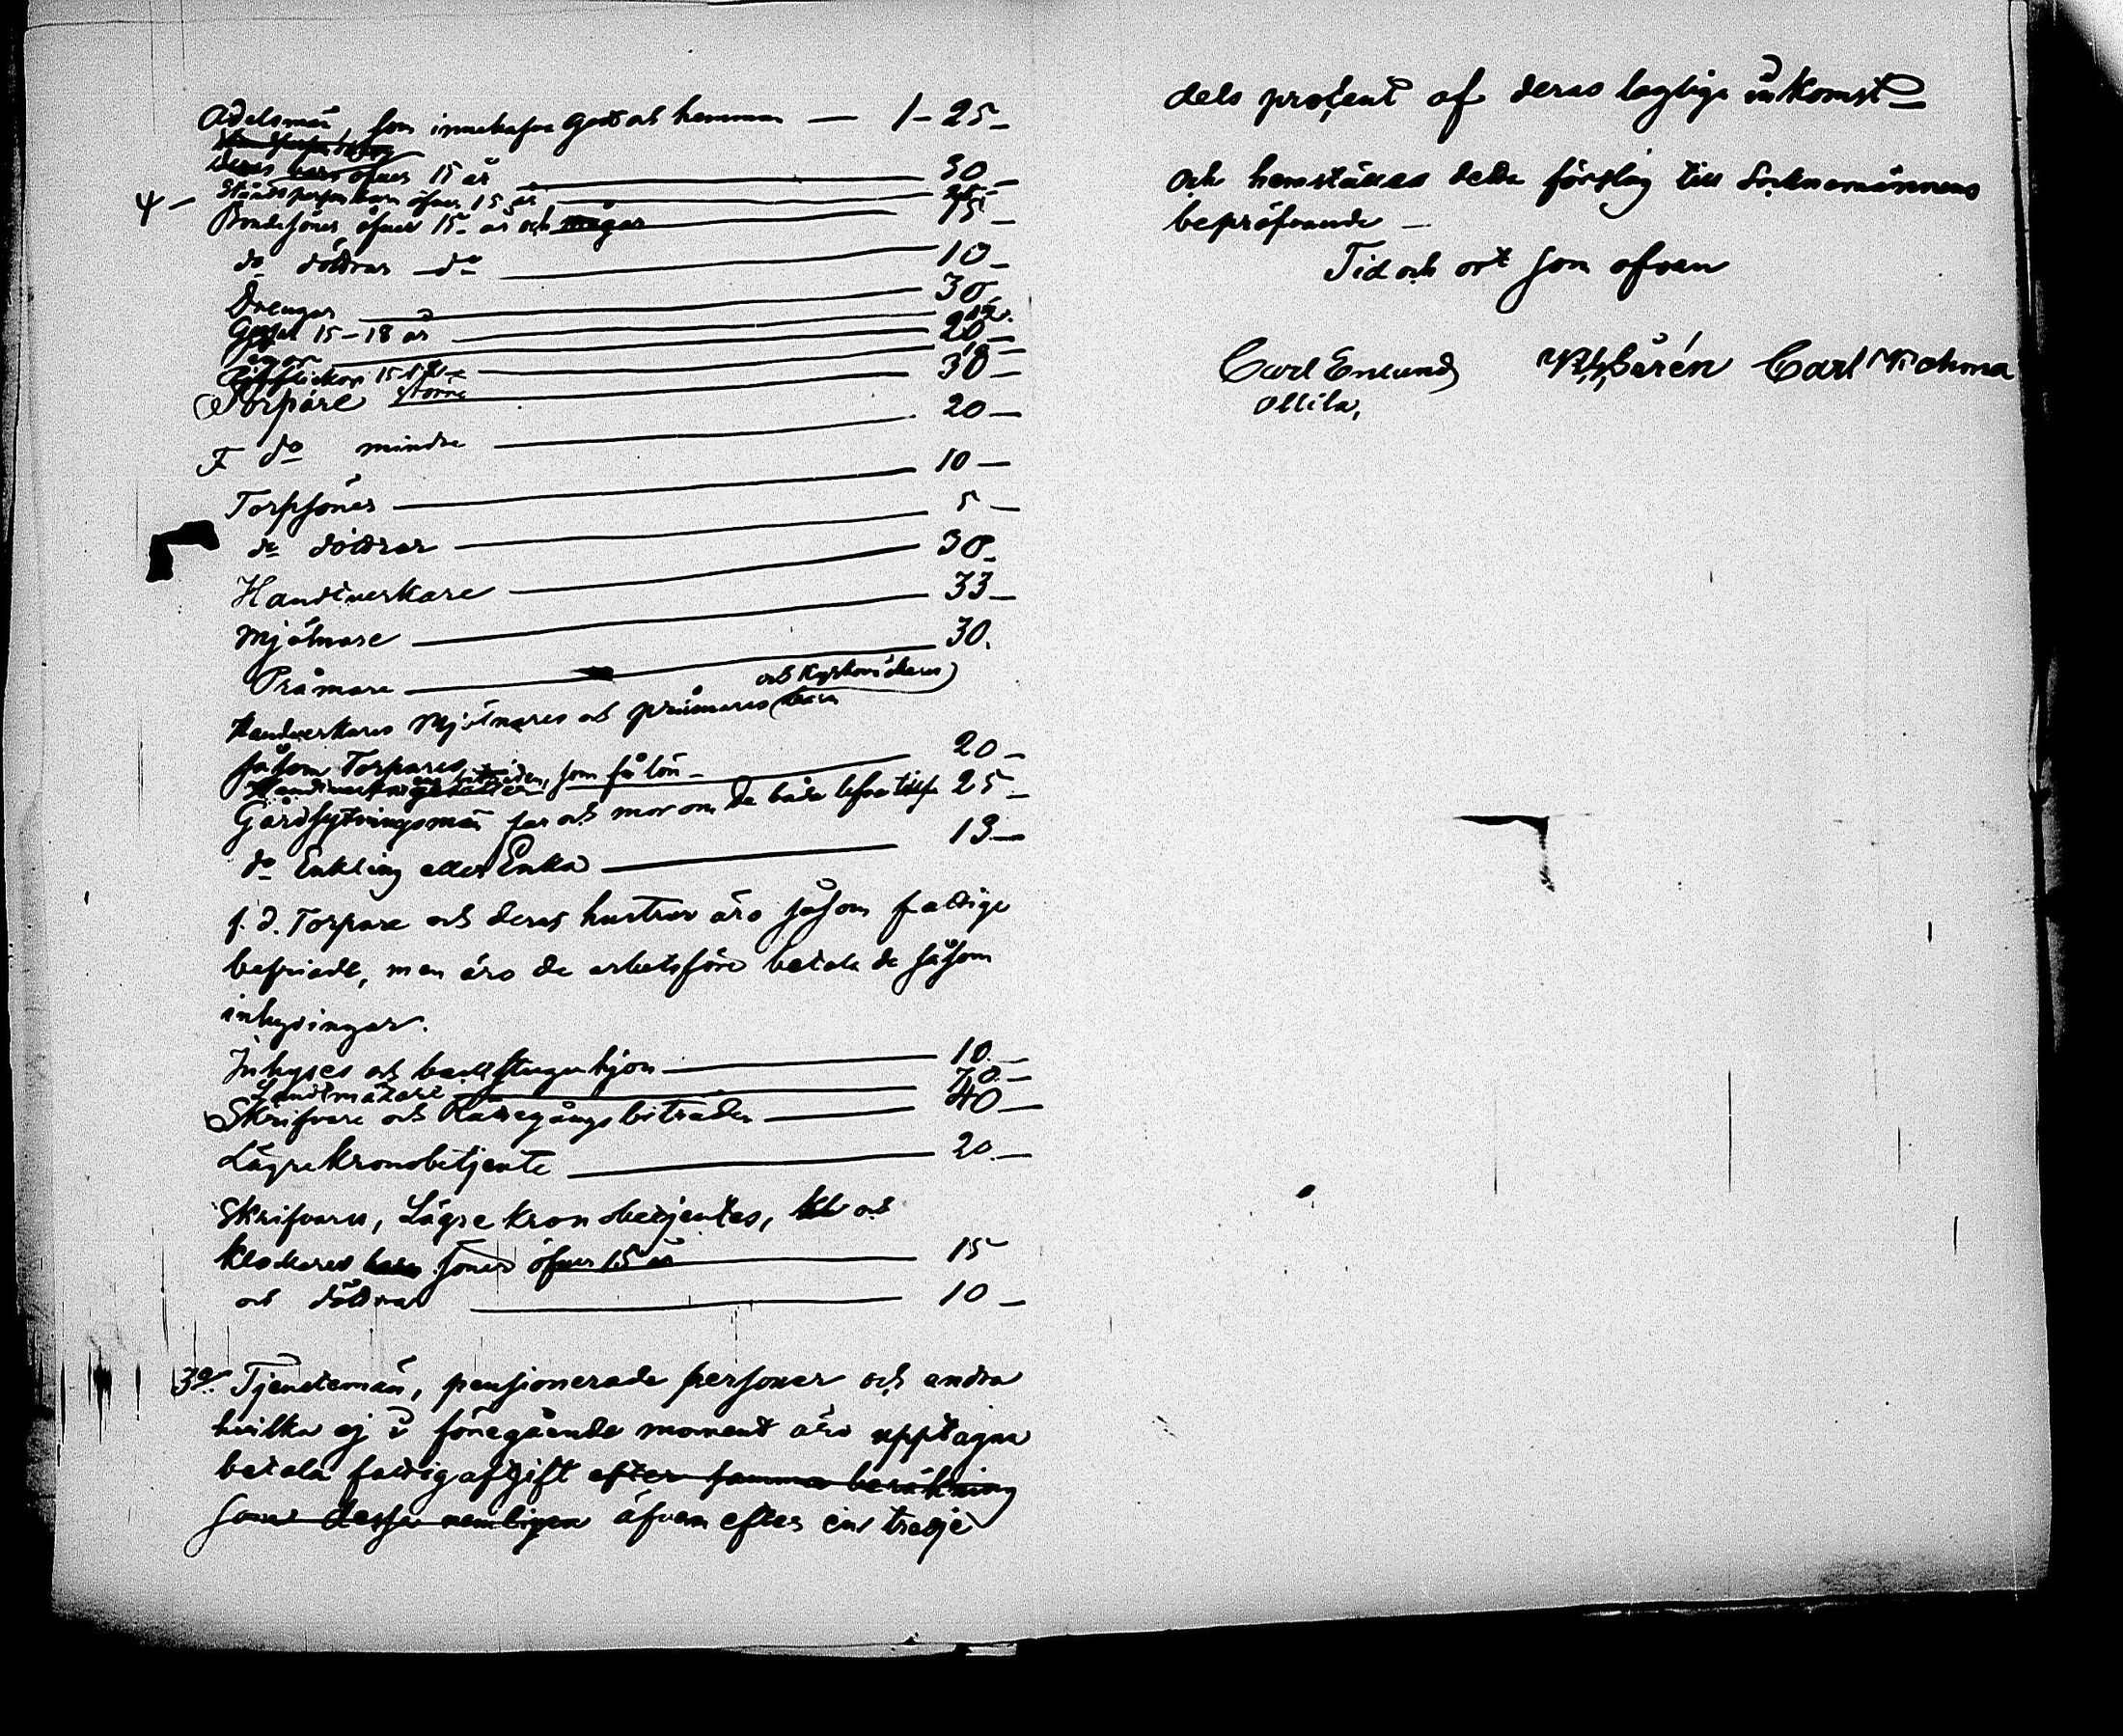 Adelsmän som innehafva Gods och hemman — 1 - 25 -
Deras barn öfver 15 år — 30 -
Ståndspersoners barn öfver 15 år — 25 -
ψ - Bondesöner öfver 15 år och mågar — 15 -
do döttrar do — 10 -
Drengar — 30 -
Gossar 15 - 18 år — 12.
Pigor — 20 -
Flickor 15-18 — 10 -
Torpare större — 30 -
do mindre — 20 -
Torpsöner — 10 -
do döttrar — 5 -
Handtverkare — 30 -
Mjölnare — 33 -
Pråmare — 30.
och Kyrkoväktares
Handverkares Mjölnares och pråmares barn
såsom Torpares — 20 -
biträden, som få lön -
Gårdsytningsmän far och mor om de båda lefva tills. 25 -
do Enkling eller Enka — 13 -
f. d. Torpare och deras hustrur äro såsom fattige
befriade, men äro de arbetsföre betale de såsom
inhysingar.
Inhyses och backstuguhjon — 10 -
Landtmätare — 70 -
Skrifvare och Rättegångsbiträden — 40 -
Lägre Kronobetjente — 20 -
Skrifvares, Lägre kronobetjentes, och
klockares barn söner öfver 15 år — 15
och döttrar — 10 -
3o. Tjenstemän, pensionerade personer och andra
hvilka ej i föregående moment äro upptagne
betala fattigafgift efter samma beräkning
som dessa nemligen äfven efter en tredje
dels procent af deras laglige inkomst -
och hemställes detta förslag till Socknemännens
bepröfvande -
Tid och ort som ofvan
Carl Enlund Carl
Ollila,